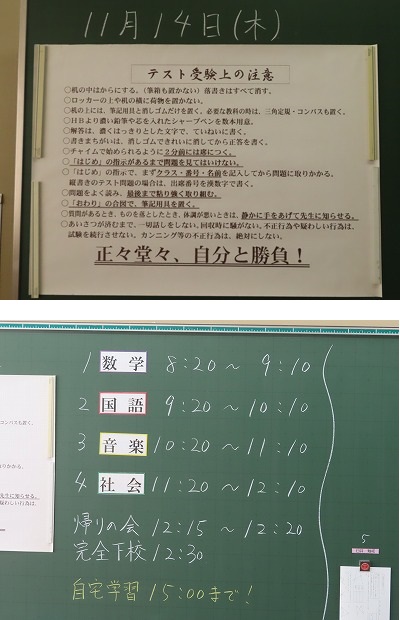 11月14日(木)
テスト受験上の注意
○机の中はからにする。(筆箱も置かない)落書きはすべて消す。
○ロッカーの上や机の横に荷物を置かない。
○机の上には、筆記用具と消しゴムだけを置く。必要な教科の時は、三角定規・コンパスも置く。
○HBより濃い鉛筆や芯を入れたシャープペンを数本用意。
○解答は、濃くはっきりとした文字で、ていねいに書く。
○書きまちがいは、消しゴムできれいに消してから正答を書く。
○チャイムで始められるように2分前には席につく。
○「はじめ」の指示があるまで問題を見てはいけない。
○「はじめ」の指示で、まずクラス・番号・名前を記入してから問題に取りかかる。
縦書きのテスト問題の場合は、出席番号を漢数字で書く。
○問題をよく読み、最後まで粘り強く取り組む。
○「おわり」の合図で、筆記用具を置く。
○質問があるとき、ものを落としたとき、体調が悪いときは、静かに手をあげて先生に知らせる。
○あいさつが済むまで、一切話しをしない。回収時に騒がない。不正行為や疑わしい行為は、
試験を続行させない。カンニング等の不正行為は、絶対にしない。
正々堂々、自分と勝負!
1 数学 8:20〜9:10
2 国語 9:20〜10:10
3 音楽 10:20〜11:10
4 社会 11:20〜12:10
帰りの会 12:15〜12:20
完全下校 12:30
自宅学習 15:00まで!
コンパスも置く。
りかかる。
先生に知らせる。
わしい行為は、
5